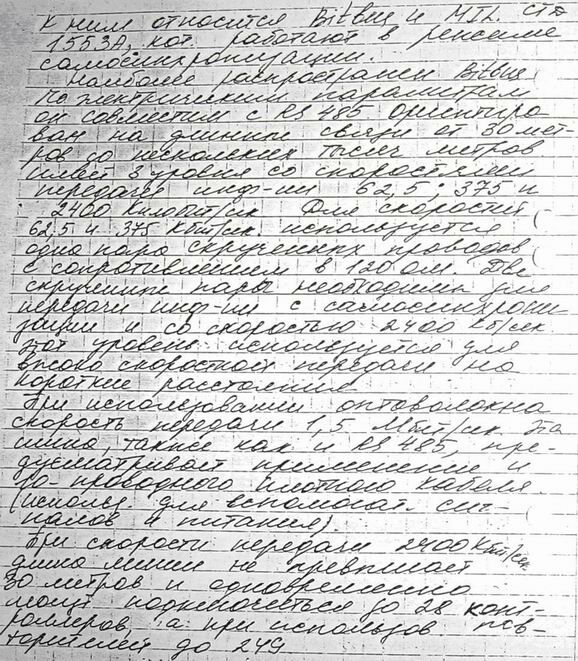 К ним относится Bitbus и MIL. СТD
1553А, кот. работают в режиме
самосинхронизации.
Наиболее распространен Bitbus
По электрическим параметрам
он совместим с RS 485 Ориентиро-
ван на длинны связи от 30 мет-
ров до нескольких тысяч метров
имеет 3 уровня со скоростями
передачи инф-ии 62,5; 375 и
2400 Килобит/сек Для скоростей
62,5 и 375 Кбит/сек. используется
одна пара скрученных проводов
с сопротивлением в 120 ом. Две
скрученных пары необходимы для
передачи инф-ии с самосинхрони
зации и со скоростью 2400 Кб/сек
этот уровень используется для
высоко скоростной передачи на
короткие расстояния
При использовании оптоволокна
скорость передачи 1,5 Мбит/сек Эта
шина, также как и RS 485, пре-
дусматривает применение и
го проводного плотного кабеля
(использ. для вспомогат. сиг-
налов и питания)
При скорости передачи 2400 Кбит/сек.
длина линии не превышает
30 метров и одновременно
могут подключаться до 28 конт-
роллеров, а при использов пов-
торителей до 249